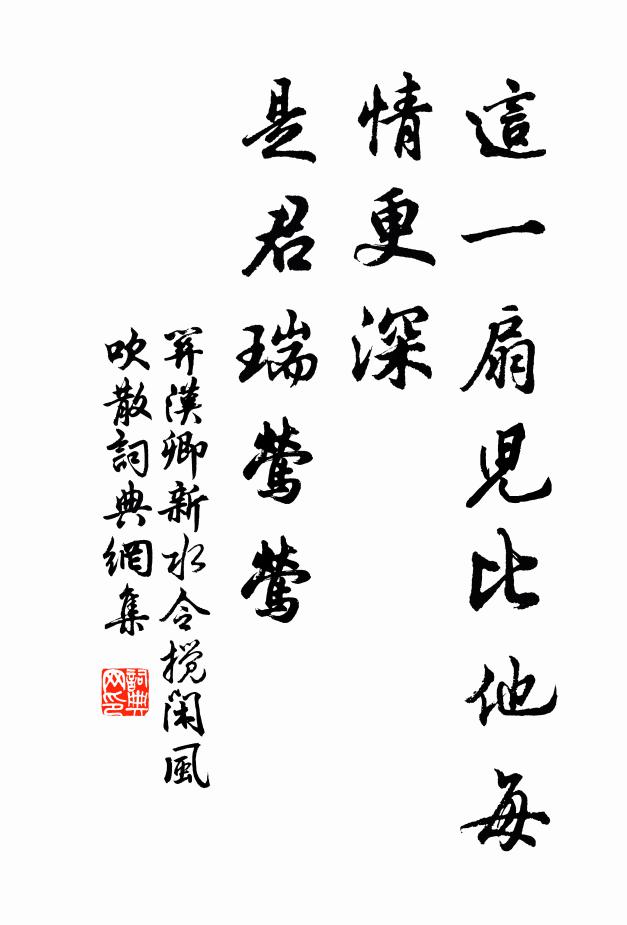 這一扇兒比他每
情更深
是君瑞鶯鶯
關漢卿新水令攪閑風
吹散詞典網集
詞典
网印